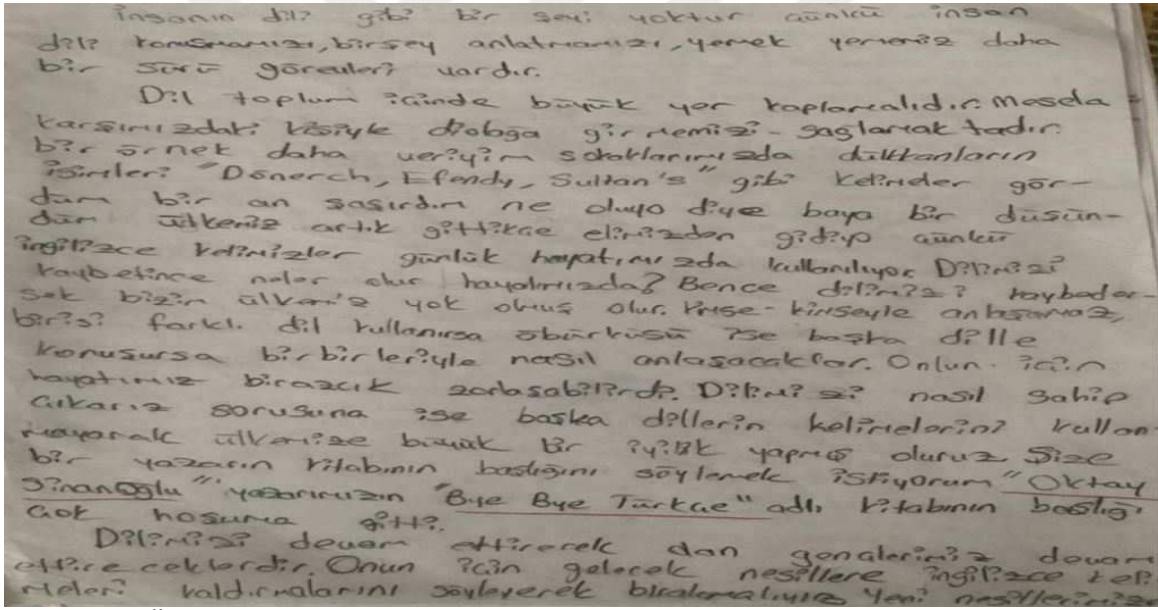 insanın dili gibi bir şeyi yoktur çünkü insan
dili konuşmamızı, birşey anlatmamızı, yemek yememiz daha
bir sürü görevleri vardır.
Dil toplum içinde büyük yer kaplamalıdır. Mesela
karşımızdaki kişiyle diologa girmemizi sağlamaktadır.
bir örnek daha veriyim sokaklarımızda dükkanların
isimleri "Dönerch, Efendy, Sultan's" gibi kelimeler gör-
düm bir an şaşırdım ne oluyo diye baya bir düşün-
düm ülkemiz artık gittikçe elimizden gidiyo çünkü
ingilizce kelimizler günlük hayatımızda kullanılıyor. Dilimizi
kaybetince neler olur hayatımızda? Bence dilimizi kaybeder-
sek bizim ülkemiz yok olmuş olur. Kimse-kimseyle anlaşamaz,
birisi farklı dil kullanırsa öbürküsü ise başka dille
konuşursa birbirleriyle nasıl anlaşacaklar. Onlun için
hayatımız birazcık zorlaşabilirdi. Dilimizi nasıl sahip
çıkarız sorusuna ise başka dillerin kelimelerini kullan-
mayarak ülkemize büyük bir iyilik yapmış oluruz. Size
bir yazarın kitabının başlığını söylemek istiyorum "Oktay
Sinanoğlu" yazarımızın "Bye Bye Türkçe" adlı kitabının başlığı
çok hoşuma gitti.
Dilimizi devam ettirerek dan gençlerimiz devam
ettireceklerdir. Onun için gelecek nesillere ingilizce keli-
meleri kaldırmalarını söyleyerek bırakmalıyız yeni nesillerimize